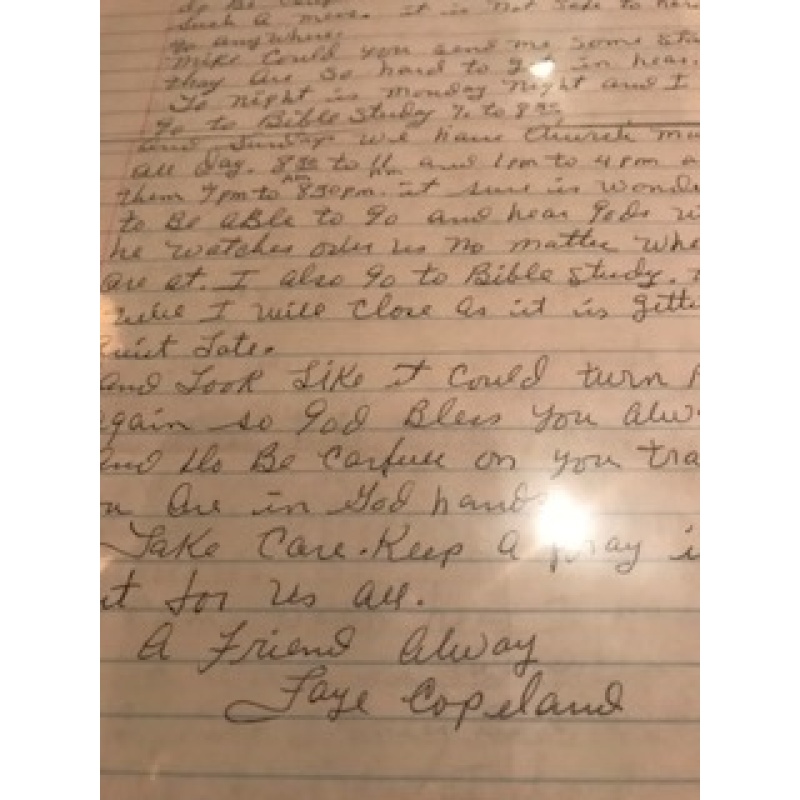 such a mess. it is not safe to
go anywhere.
Mike Could you send me some
they are so hard to get in hear.
To night is monday night and I
go to Bible Study 7. to 8 30
and Sunday we have Church
all day. 8 30 to 11 AM and 1pm to 4 pm a
them 7pm to 830pm. it sure is wond
to Be ABle to go and hear gods w
he watches over us no matter whe
are at. I also go to Bible study.
I will Close As it is gett
Late.
and Look Like it Could turn
again so god Bless you alw
and do Be Carfull on you tra
are in God hands
Take Care. Keep a pray i
it for us all.
A Friend Alway
Faye Copeland